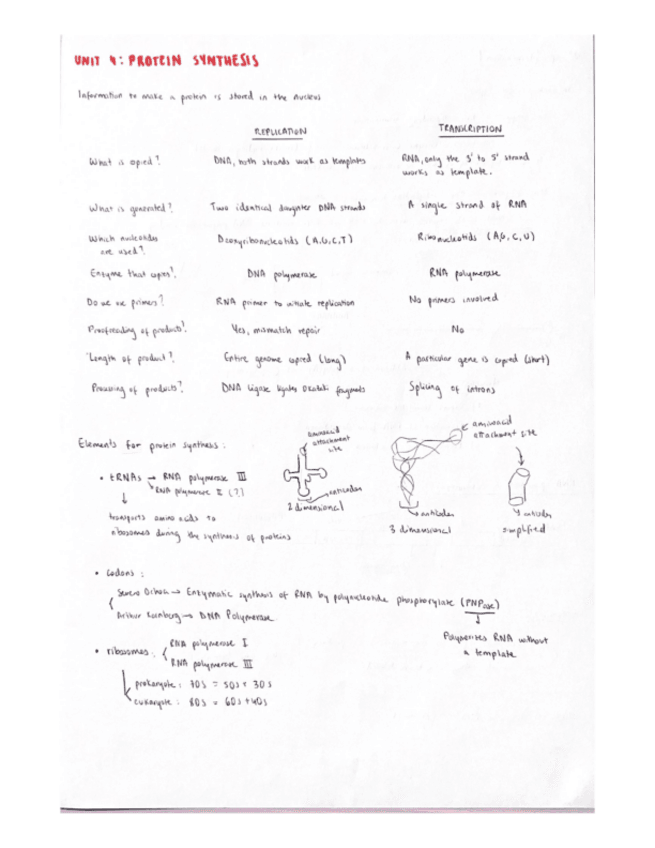 UNIT 4: PROTEIN SYNTHESIS
Information to make a protein is stored in the nucleus
REPLICATION TRANSCRIPTION
What is copied? DNA, both strands work as templates RNA, only the 3' to 5' strand
works as template.
What is generated? Two identical daughter DNA strands A single strand of RNA
Which nucleotides Deoxyribonucleotids (A,G,C,T) Ribonucleotids (A,G,C,U)
are used?
Enzyme that copies? DNA polymerase RNA polymerase
Do we use primers? RNA primer to initiate replication No primers involved
Proofreading of products? Yes, mismatch repair No
Length of product? Entire genome copied (long) A particular gene is copied (short)
Processing of products? DNA ligase ligates Okazaki fragments Splicing of introns
Elements for protein synthesis:
aminoacid
attachment
site
anticodon
2 dimensional
aminoacid
attachment site
anticodon
3 dimensional
anticodon
simplified
• tRNAs → RNA polymerase III
RNA polymerase II (?)
transports amino acids to
ribosomes during the synthesis of proteins
• Codons:
Severo Ochoa → Enzymatic synthesis of RNA by polynucleotide phosphorylate (PNPase)
Arthur Kornberg → DNA Polymerase
Polymerizes RNA without
a template
• ribosomes: RNA polymerase I
RNA polymerase III
prokaryote: 70S = 50S + 30S
eukaryote: 80S = 60S + 40S